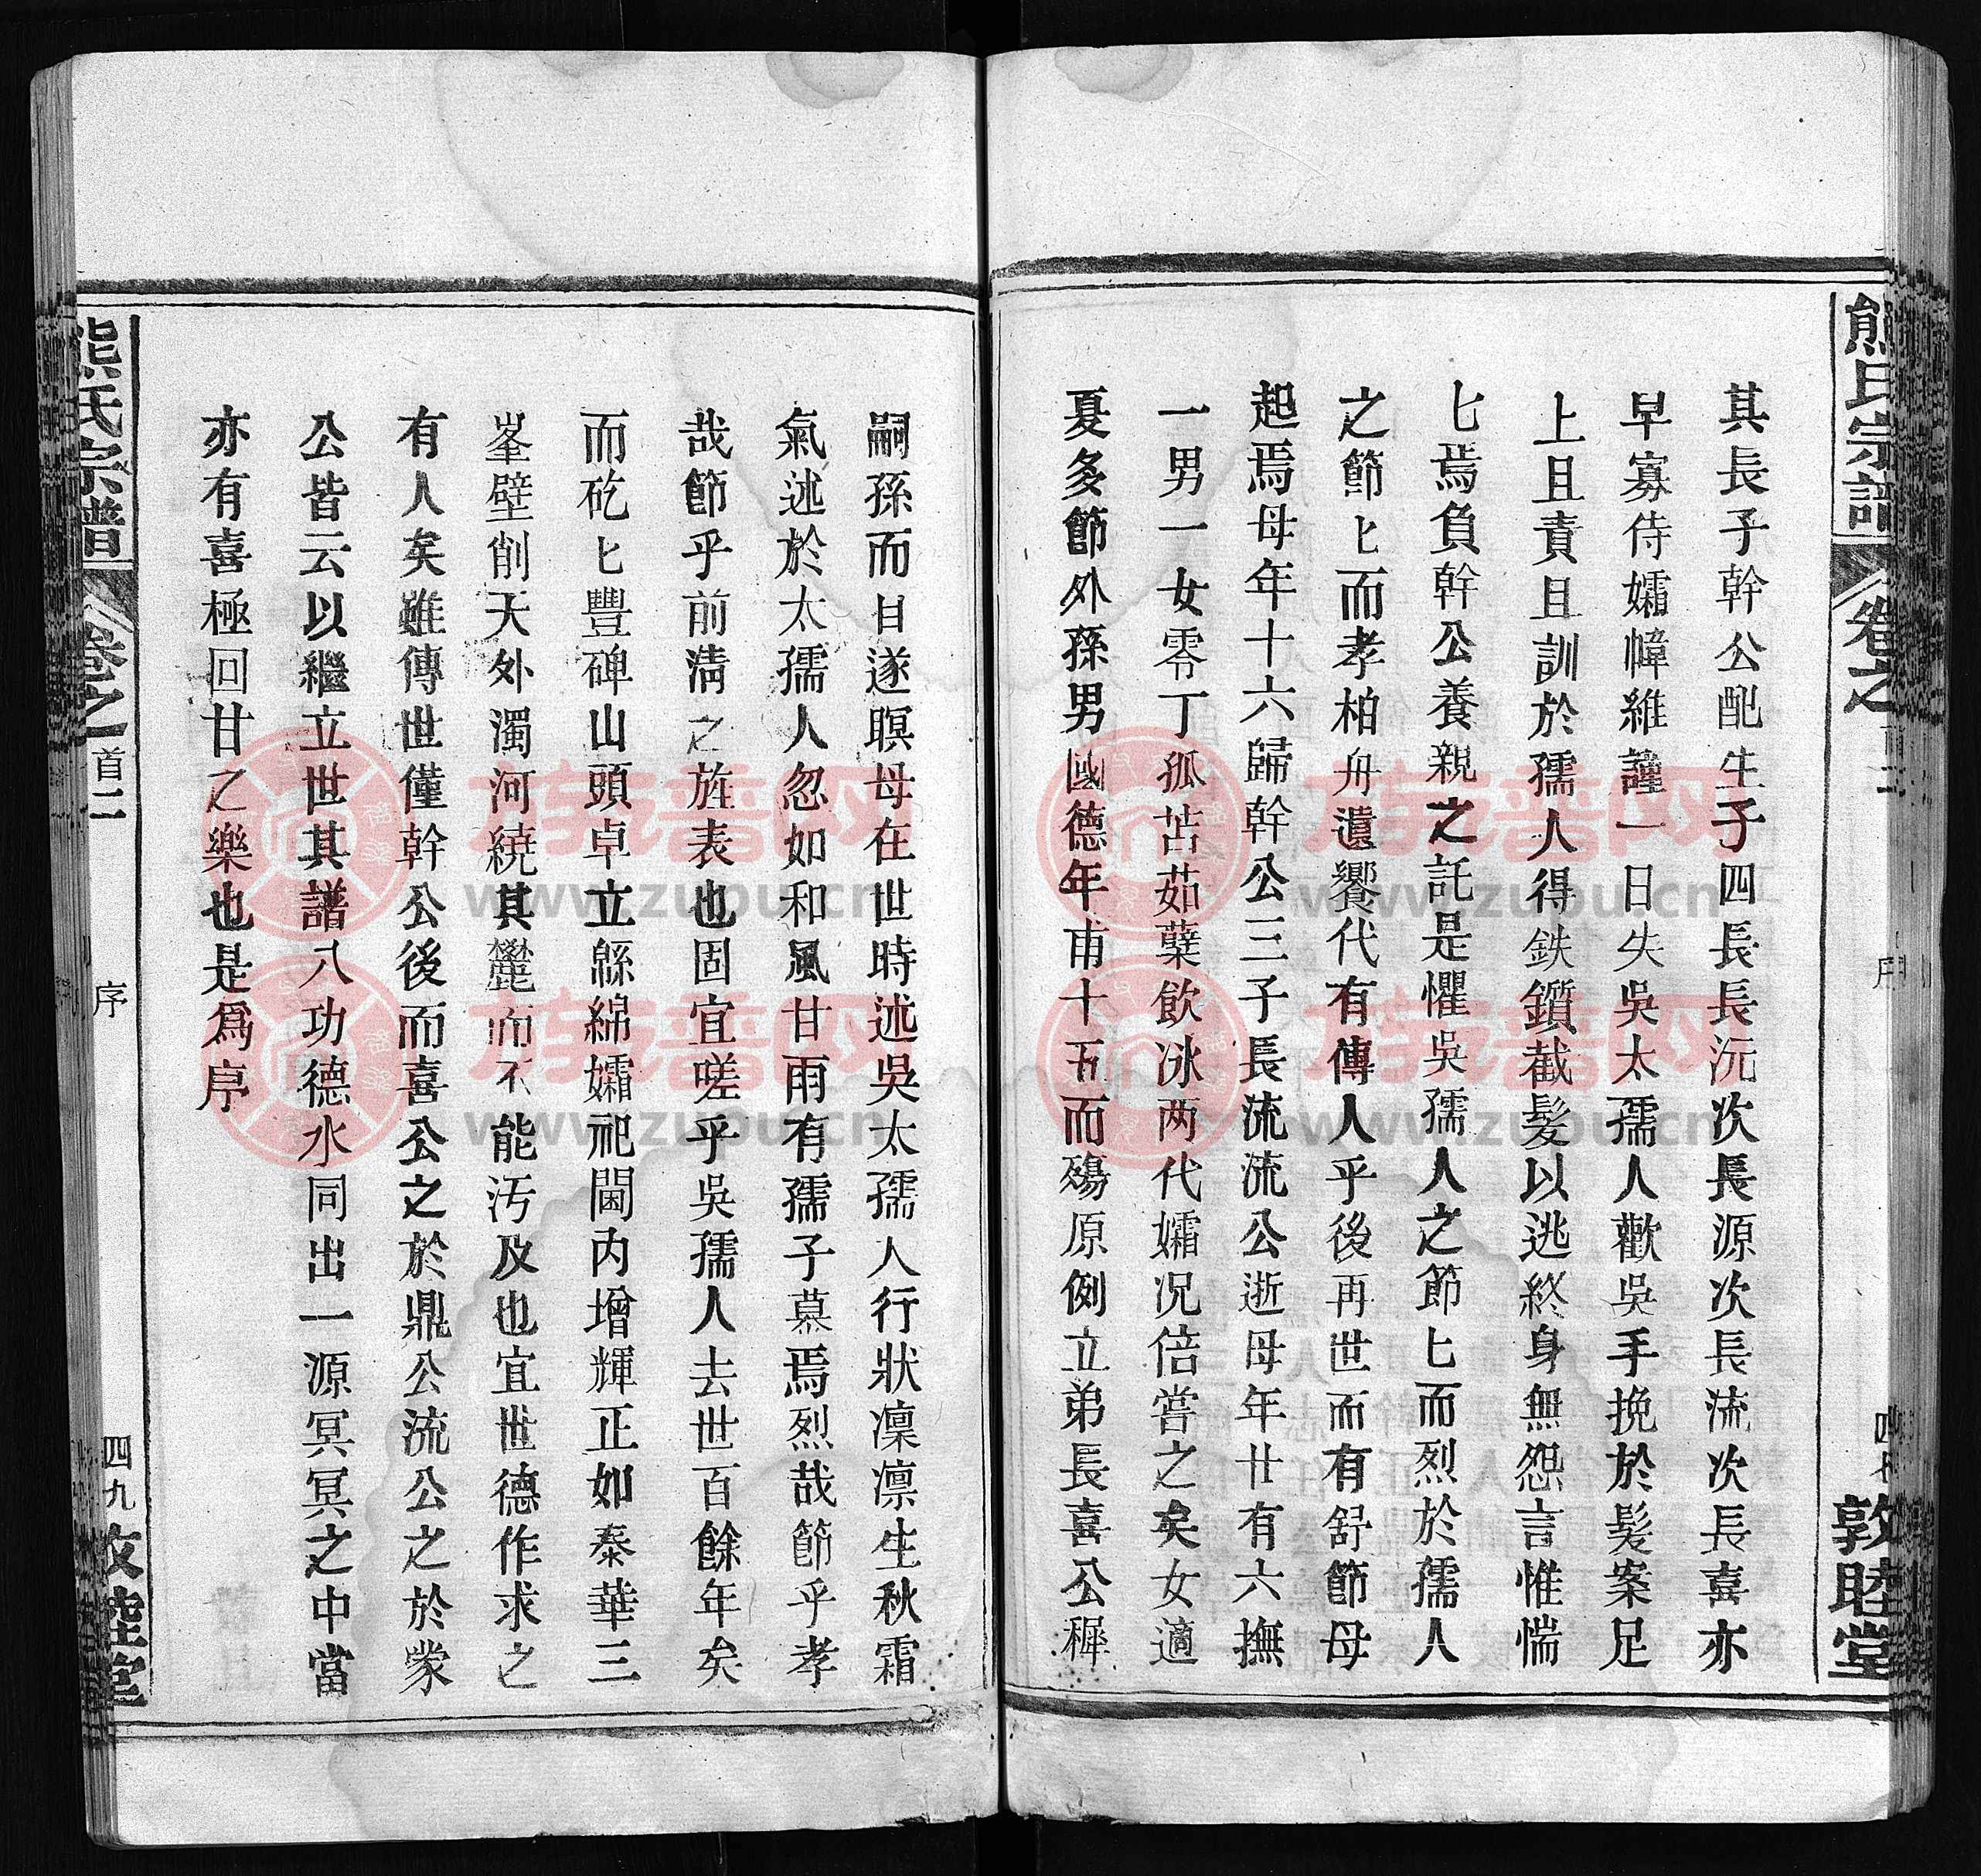 熊氏宗譜 卷之首二 序 敦睦堂
其長子幹公配生子四長長沅次長源次長流次長喜亦
早寡侍孀幃維謹一日失吳太孺人歡吳手挽於髮案足
上且責且訓於孺人得鉄鑽截髮以逃終身無怨言惟惴
匕焉負幹公養親之託是懼吳孺人之節匕而烈於孺人
之節匕而孝柏舟遺饗代有傳人乎後再世而有舒節母
起焉母年十六歸幹公三子長流流公逝母年廿有六撫
一男一女零丁孤苦茹蘖飲冰两代孀况倍嘗之矣女適
夏多節外孫男國德年甫十五而殤原例立弟長喜公穉
嗣孫而目遂暝母在世時述吳太孺人行狀凜凛生秋霜
氣述於太孺人忽如和風甘雨有孺子慕焉烈哉節乎孝
哉節乎前淸之旌表也固宜嗟乎吳孺人去世百餘年矣
而矻匕豐碑山頭卓立緜綿孀祀閫内增輝正如泰華三
峯壁削天外濁河繞其麓而不能汚及也宜世德作求之
有人矣雖傳世僅幹公後而喜公之於鼎公流公之於嵘
公皆云以繼立世其譜八功德水同出一源冥冥之中當
亦有喜極回甘之樂也是爲序
熊氏宗譜 卷之首二 序 四九 敦睦堂
族譜网
www.zupu.cn
族譜网
www.zupu.cn
族譜网
www.zupu.cn
族譜网
www.zupu.cn